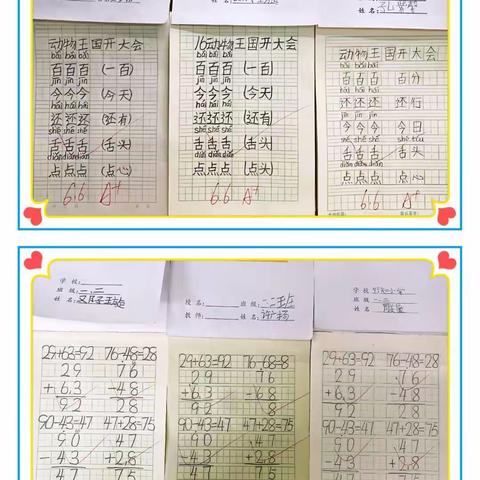 姓名:
动物王国开大会
bǎi bǎi bǎi
百百百 (一百)
jīn jīn jīn
今今今 (今天)
hái hái hái
还还还 (还有)
shé shé shé
舌舌舌 (舌头)
diǎn diǎn diǎn
点点点 (点心)
6.6 A+
16动物王国开大会
bǎi bǎi bǎi
百百百 (一百)
jīn jīn jīn
今今今 (今天)
hái hái hái
还还还 (还有)
shé shé shé
舌舌舌 (舌头)
diǎn diǎn diǎn
点点点 (点头)
6.6 A+
动物王国开大会
bǎi bǎi bǎi
百百百 百分
还还还 还行
今今今 今日
舌舌舌 舌头
点点点 点心
6.6 A+
学校:
班级: 一、二
姓名:
校名: 班级:
教师: 姓名:
学校
班级
姓名
29+63=92 76-48=28
29 76
+63 -48
92 28
90-43=47 47+28=75
90 47
-43 +28
47 75
29+63=92 76-68=8
29 76
+63 -68
92 8
90-43=47 47+28=75
90 47
-43 +28
47 75
29+63=92 76-48=28
29 76
+63 -48
92 28
90-43=47 47+28=75
90 47
-43 +28
47 75